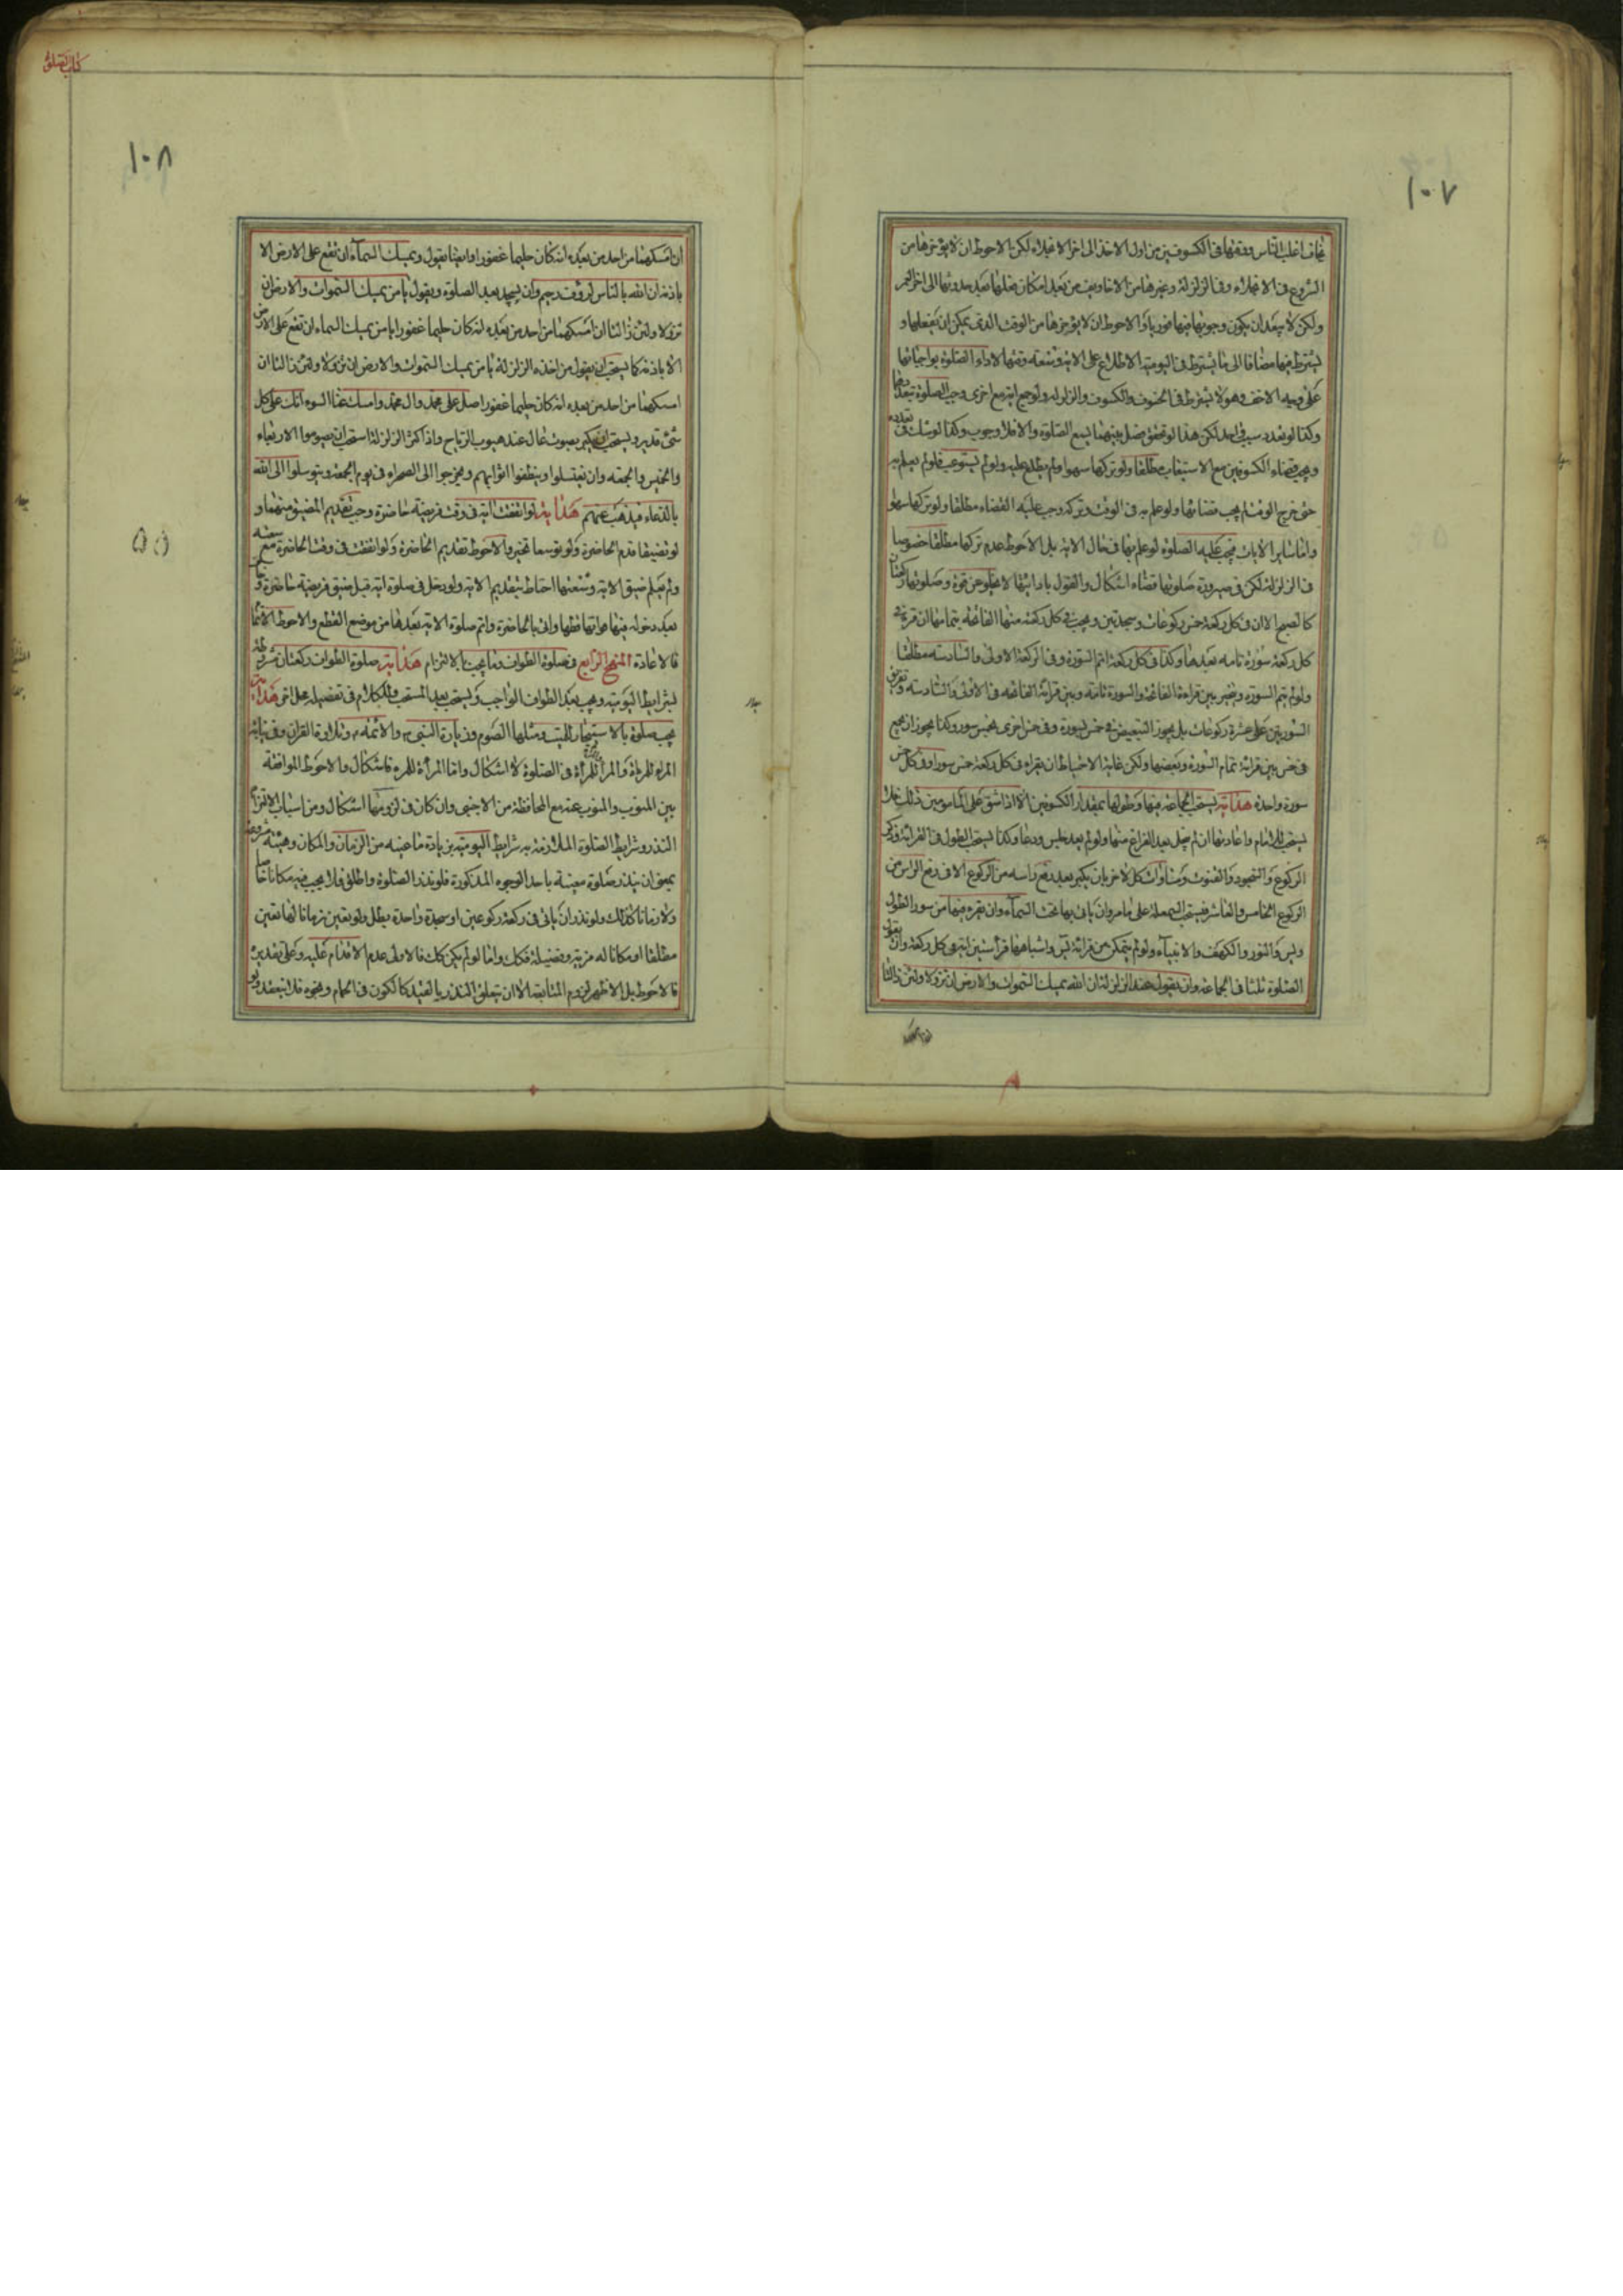 ١٠٧
يخاف اغلب الناس ووقتها فى الكسوفين من اول الاخذ الى اخر الانجلاء لكن الاحوط ان لا يؤخرها من
الشروع فى الانجلاء وفى الزلزلة وغيرها من الاخاويف من بعد امكان فعلها بعد حدوثها الى اخر العمر
ولكن لا يبعد ان يكون وجوبها فيها فوريا والاحوط ان لا يؤخرها من الوقت الذى يمكن ان يفعلها و
يشترط فيها مضافا الى ما يشترط فى اليومية الاطلاع على الاية وسعة وقتها لاداء الصلوة بواجباتها
على وجه الاخف وهو لا يشترط فى الخسوف والكسوف والزلزلة ولو جمع اية مع اخرى وجب الصلوة بعددها
وكذا لو تعدد سبب واحد لكن هذا لو تحقق فصل بينهما يسع الصلوة والا فلا وجوب وكذا لو شك فى تعدده
ويجب قضاء الكسوفين مع الاستيعاب مطلقا ولو تركها سهوا ولم يطلع عليه ولو لم يستوعب فلو لم يعلم به
حتى خرج الوقت لم يجب قضائها ولو علم به فى الوقت وتركه وجب عليه القضاء مطلقا ولو تركها سهوا
واما ساير الايات فيجب عليه الصلوة لو علم بها فى حال الاية بل الاحوط عدم تركها مطلقا خصوصا
فى الزلزلة لكن فى صيرورة صلوتها قضاء اشكال والقول بادائيتها لا يخلو عن قوة وصلوتها ركعتان
كالصبح الا ان فى كل ركعة خمس ركوعات وسجدتين ويجب فى كل ركعة منها الفاتحة بتمامها ان قرء فى
كل ركعة سورة تامة بعدها وكذا فى كل ركعة اتم السورة وفى الركعة الاولى والسادسة مطلقا
ولو لم يتم السورة ويتخير بين قراءة الفاتحة والسورة تامة وبين قرائة الفاتحة فى الاولى والسادسة وتفريق
السورتين على عشرة ركوعات بل يجوز التبعيض فى خمس بسورة وفى خمس اخرى بخمس سور وكذا يجوز ان يجمع
فى خمس بين قرائة تمام السورة وبعضها ولكن غاية الاحتياط ان يقراء فى كل ركعة خمس سور او فى كل خمس
سورة واحدة هداية يستحب الجماعة فيها وطولها بمقدار الكسوفين الا اذا شق على المامومين ذلك فلا
يستحب للامام واعادتها ان لم ينجل بعد الفراغ منها ولو لم يعد جلس ودعا وكذا يستحب الطول فى القرائة وذكر
الركوع والسجود والقنوت ومساوات كل الاخر بان يكبر بعد رفع راسه من الركوع الا فى رفع الراس من
الركوع الخامس والعاشر فيستحب السمعلة على ما مر وان ياتى بها تحت السماء وان يقرء فيها من سور الطول
ويس والنور والكهف والانبياء ولو لم يتمكن من قرائة يس واشباهها قرأ ستين اية فى كل ركعة وان يقول
الصلوة ثلثا فى الجماعة وان يقول عند الزلزلة ان الله يمسك السموات والارض ان تزولا ولئن زالتا
كتاب الصلوة
١٠٨
ان امسكهما من احد من بعده انه كان حليما غفورا وايضا يقول ويمسك السماء ان تقع على الارض الا
باذنه ان الله بالناس لرؤف رحيم وان يسجد بعد الصلوة ويقول يا من يمسك السموات والارض ان
تزولا ولئن زالتا ان امسكهما من احد من بعده انه كان حليما غفورا يا من يمسك السماء ان تقع على الارض
الا باذنه كما يستحب ان يقول من اخذه الزلزلة يا من يمسك السموات والارض ان تزولا ولئن زالتا ان
امسكهما من احد من بعده انه كان حليما غفورا صل على محمد وال محمد وامسك عنا السوء انك على كل
شئ قدير ويستحب ان يكبر بصوت عال عند هبوب الرياح واذا كثر الزلزلة استحب ان يصوموا الاربعاء
والخميس والجمعة وان يغتسلوا وينظفوا اثوابهم ويخرجوا الى الصحراء فى يوم الجمعة ويتوسلوا الى الله
بالدعاء فيذهب عنهم هداية لو اتفقت اية فى وقت فريضة حاضرة وجب تقديم المضيق منهما و
لو تضيقا قدم الحاضرة ولو توسعا تخير والاحوط تقديم الحاضرة ولو اتفقت فى وقت الحاضرة مع سعته
ولم يعلم ضيق الاية وسعتها احتاط بتقديم الاية ولو دخل فى صلوة اية قبل ضيق فريضة حاضرة و
بعد دخوله فيها قطعها واتى بالحاضرة واتم صلوة الاية بعدها من موضع القطع والاحوط الاتمام
فالاعادة المنهج الرابع فى صلوة الطواف وما يجب بالالتزام هداية صلوة الطواف ركعتان مشروطة
بشرايط اليومية ويجب بعد الطواف الواجب ويستحب بعد المستحب والكلام فى تفصيله محل اخر هداية
يجب صلوة بالاستيجار للميت ومثلها الصوم وزيارة النبى والائمة وتلاوة القران وفى نيابة
المرء للمرءة والمرأة للمرأة فى الصلوة لا اشكال واما المرأة للمرء فاشكال والاحوط الموافقة
بين المنوب والمنوب عنه مع المحافظة من الاجنبى وان كان فى لزومها اشكال ومن اسباب الالتزام
النذر وشرايط الصلوة الملتزمة به شرايط اليومية بزيادة ما عينه من الزمان والمكان وهيئة مشروعة
بمعنى ان ينذر صلوة معينة باحد الوجوه المذكورة فلو نذر الصلوة واطلق فلا يجب فيه مكانا خاصا
ولا زمانا كذلك ولو نذر ان ياتى فى ركعة ركوعين او سجدة واحدة يبطل ولو يعين زمانا لها تعين
مطلقا او مكانا له مزية وفضيلة فكك واما لو لم يكن كك فالاولى عدم الاقدام عليه وعلى تقديره
فالاحوط بل الاظهر لزوم المتابعة الا ان يتعلق النذر بالقيد كالكون فى الحمام ونحوه فلا ينعقد ولو